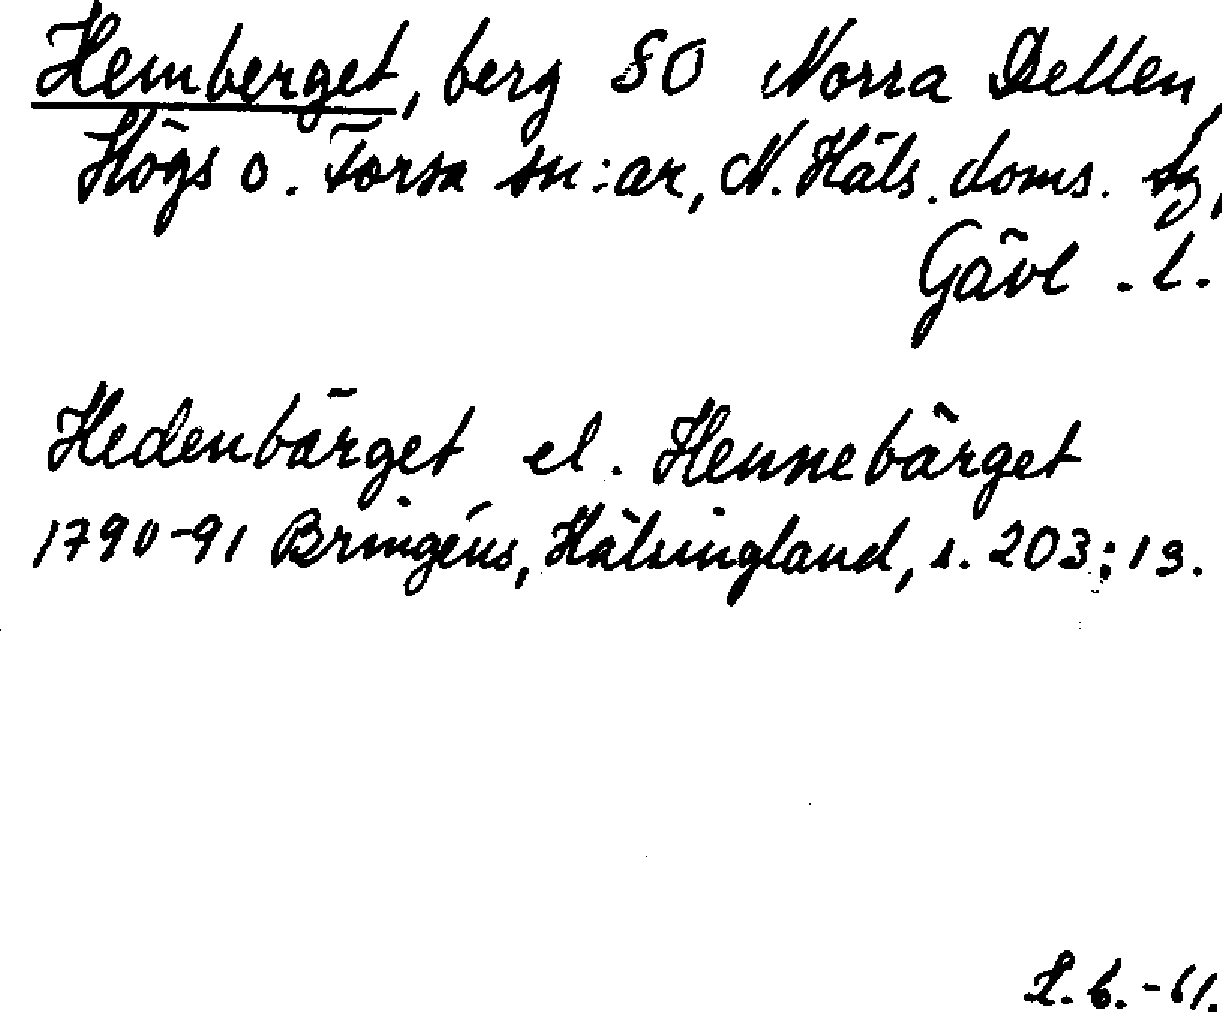 Hemberget, berg SO Norra Dellen,
Högs o. Forsa sn:ar, N. Häls. doms. sg,
Gävl. l.
Hedenbärget el. Hennebärget
1790-91 Bringéus, Hälsingland, s. 203; 19.
L. b. -61.